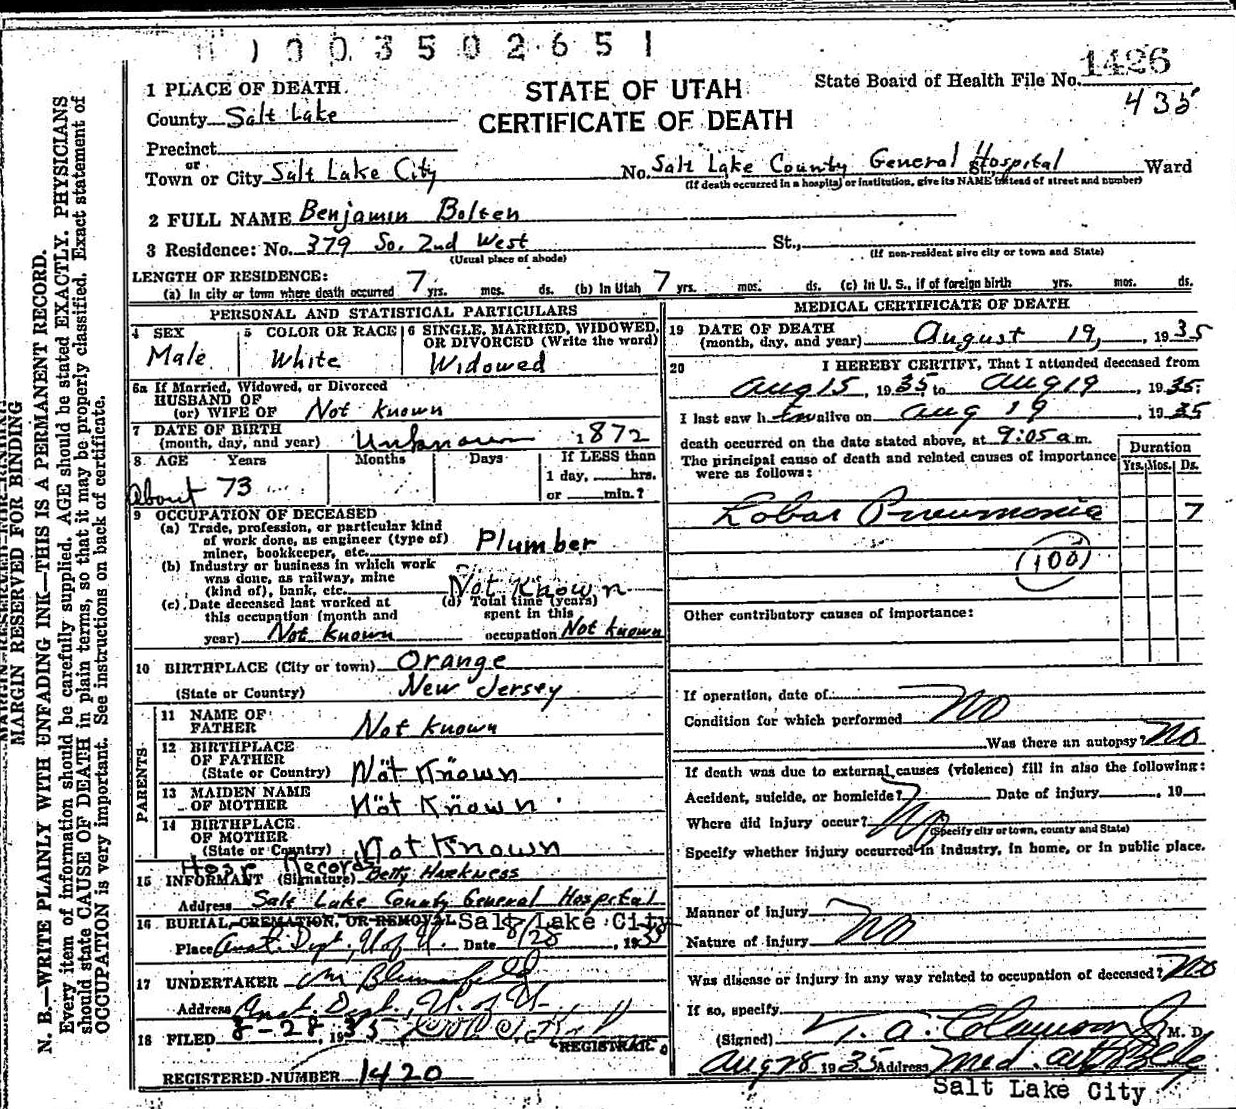 1003502651
1 PLACE OF DEATH
STATE OF UTAH
CERTIFICATE OF DEATH
State Board of Health File No. 1426
435
County Salt Lake
Precinct
or
Town or City Salt Lake City No. Salt Lake County General Hospital St., Ward
(If death occurred in a hospital or institution, give its NAME instead of street and number)
2 FULL NAME Benjamin Bolten
3 Residence: No. 379 So. 2nd West St.,
(Usual place of abode) (If non-resident give city or town and State)
LENGTH OF RESIDENCE:
(a) In city or town where death occurred 7 yrs. mos. ds. (b) In Utah 7 yrs. mos. ds. (c) In U. S., if of foreign birth yrs. mos. ds.
PERSONAL AND STATISTICAL PARTICULARS
4 SEX
Male
5 COLOR OR RACE
White
6 SINGLE, MARRIED, WIDOWED, OR DIVORCED (Write the word)
Widowed
6a If Married, Widowed, or Divorced
HUSBAND OF
(or) WIFE OF Not Known
7 DATE OF BIRTH
(month, day, and year) Unknown 1872
8 AGE Years Months Days If LESS than
1 day, hrs.
or min.?
About 73
9 OCCUPATION OF DECEASED
(a) Trade, profession, or particular kind
of work done, as engineer (type of)
miner, bookkeeper, etc. Plumber
(b) Industry or business in which work
was done, as railway, mine
(kind of), bank, etc. Not Known
(c) Date deceased last worked at
this occupation (month and
year) Not Known
(d) Total time (years)
spent in this
occupation Not Known
10 BIRTHPLACE (City or town) Orange
(State or Country) New Jersey
PARENTS
11 NAME OF
FATHER Not Known
12 BIRTHPLACE
OF FATHER
(State or Country) Not Known
13 MAIDEN NAME
OF MOTHER Not Known
14 BIRTHPLACE
OF MOTHER
(State or Country) Not Known
Hosp Records
15 INFORMANT (Signature) Betty Harkness
Address Salt Lake County General Hospital
16 BURIAL, CREMATION, OR REMOVAL Salt Lake City
Place Anat. Dept., U of U. Date 8/28, 1935
17 UNDERTAKER
Address Anat. Dept., U. of U.
18 FILED 8-28, 1935
REGISTRAR
REGISTERED NUMBER 1420
MEDICAL CERTIFICATE OF DEATH
19 DATE OF DEATH
(month, day, and year) August 19, 1935
20 I HEREBY CERTIFY, That I attended deceased from
Aug 15, 1935, to Aug 19, 1935;
I last saw him alive on Aug 19, 1935
death occurred on the date stated above, at 9:05 a m.
The principal cause of death and related causes of importance
were as follows:
Duration
Yrs. Mos. Ds.
Lobar Pneumonia 7
(100)
Other contributory causes of importance:
If operation, date of
Condition for which performed No
Was there an autopsy? No
If death was due to external causes (violence) fill in also the following:
Accident, suicide, or homicide? Date of injury , 19
Where did injury occur? No
(Specify city or town, county and State)
Specify whether injury occurred in industry, in home, or in public place.
Manner of injury No
Nature of injury
Was disease or injury in any way related to occupation of deceased? No
If so, specify
(Signed) M. D.
Aug 28 1935 Address
Salt Lake City
MARGIN RESERVED FOR BINDING
N. B.—WRITE PLAINLY WITH UNFADING INK—THIS IS A PERMANENT RECORD.
Every item of information should be carefully supplied. AGE should be stated EXACTLY. PHYSICIANS
should state CAUSE OF DEATH in plain terms, so that it may be properly classified. Exact statement of
OCCUPATION is very important. See instructions on back of certificate.